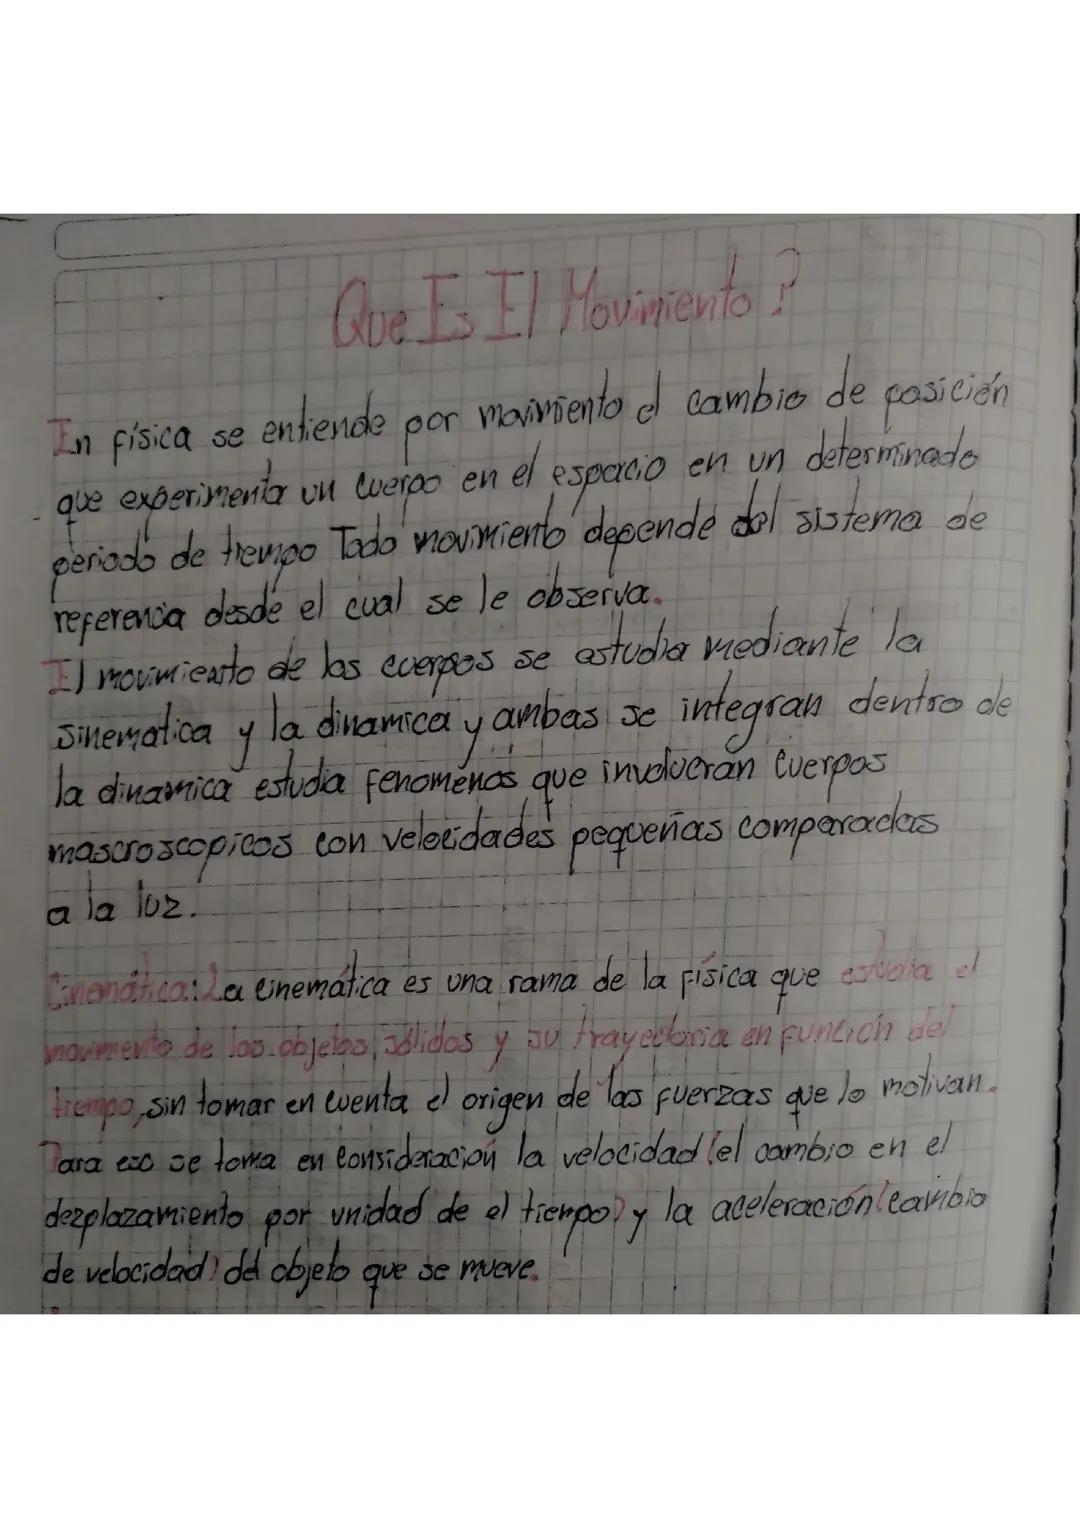 Que Es El Movimiento?
En física se entiende por movimiento el cambio de posición
que experimenta un cuerpo en el espacio en un determinado
periodo de tiempo Todo movimiento depende del sistema de
referencia desde el cual se le observa.
El movimiento de los cuerpos se estudia mediante la
sinematica y la dinamica y ambas se integran dentro de
la dinamica estudia fenomenos que involucran cuerpos
mascroscopicos con velocidades pequeñas comparadas
a la luz.
Cinemática: La cinemática es una rama de la física que estudia el
movimento de los objetos sólidos y su trayectoria en función del
tiempo, sin tomar en cuenta el origen de las fuerzas que lo motivan.
Para eso se toma en consideración la velocidad (el cambio en el
dezplazamiento por unidad de el tiempo) y la aceleración (cambio
de velocidad) del objeto que se mueve.